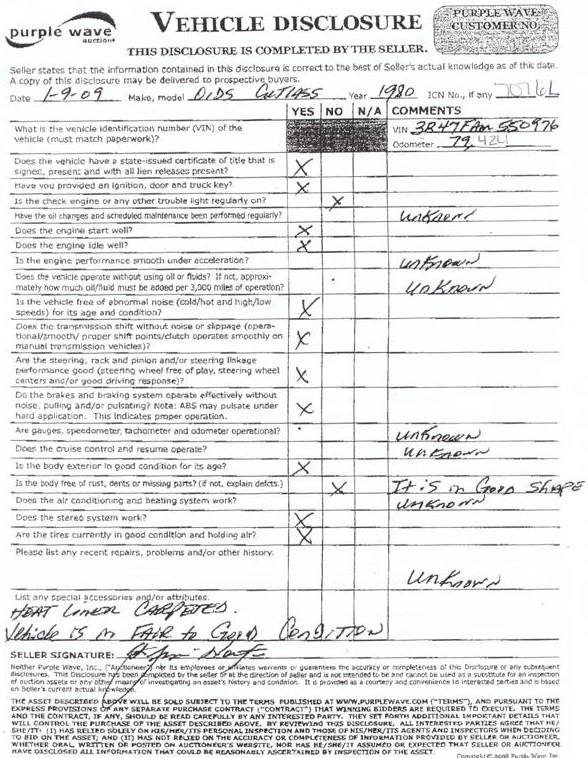 purple wave
auction
VEHICLE DISCLOSURE
THIS DISCLOSURE IS COMPLETED BY THE SELLER.
PURPLE WAVE
CUSTOMER NO.
Seller states that the information contained in this disclosure is correct to the best of Seller's actual knowledge as of this date.
A copy of this disclosure may be delivered to prospective buyers.
Date 1-9-09 Make, model OLDS CUTLASS Year 1980 ICN No., if any
YES NO N/A COMMENTS
What is the vehicle identification number (VIN) of the
vehicle (must match paperwork)?
VIN 3R47FAM 550976
Odometer 79,424
Does the vehicle have a state-issued certificate of title that is
signed, present and with all lien releases present? X
Have you provided an ignition, door and truck key? X
Is the check engine or any other trouble light regularly on? X
Have the oil changes and scheduled maintenance been performed regularly? UNKNOWN
Does the engine start well? X
Does the engine idle well? X
Is the engine performance smooth under acceleration? UNKNOWN
Does the vehicle operate without using oil or fluids? If not, approxi-
mately how much oil/fluid must be added per 3,000 miles of operation? UNKNOWN
Is the vehicle free of abnormal noise (cold/hot and high/low
speeds) for its age and condition? X
Does the transmission shift without noise or slippage (opera-
tional/smooth/ proper shift points/clutch operates smoothly on
manual transmission vehicles)? X
Are the steering, rack and pinion and/or steering linkage
performance good (steering wheel free of play, steering wheel
centers and/or good driving response)? X
Do the brakes and braking system operate effectively without
noise, pulling and/or pulsating? Note: ABS may pulsate under
hard application. This indicates proper operation. X
Are gauges, speedometer, tachometer and odometer operational? UNKNOWN
Does the cruise control and resume operate? UNKNOWN
Is the body exterior in good condition for its age? X
Is the body free of rust, dents or missing parts? (if not, explain defcts.) X It is in Good SHAPE
Does the air conditioning and heating system work? UNKNOWN
Does the stereo system work? X
Are the tires currently in good condition and holding air? X
Please list any recent repairs, problems and/or other history.
UNKNOWN
List any special accessories and/or attributes.
HEAT LINER CARPETED.
Vehicle is in FAIR to Good CONDITION
SELLER SIGNATURE:
Neither Purple Wave, Inc., ("Auctioneer") nor its employees or affiliates warrants or guarantees the accuracy or completeness of this Disclosure or any subsequent
disclosures. This Disclosure has been completed by the seller or at the direction of seller and is not intended to and cannot be used as a substitute for an inspection
of auction assets or any other means of investigating an asset's history and condition. It is provided as a courtesy and convenience to interested parties and is based
on Seller's current actual knowledge.
THE ASSET DESCRIBED ABOVE WILL BE SOLD SUBJECT TO THE TERMS PUBLISHED AT WWW.PURPLEWAVE.COM ("TERMS"), AND PURSUANT TO THE
EXPRESS PROVISIONS OF ANY SEPARATE PURCHASE CONTRACT ("CONTRACT") THAT WINNING BIDDERS ARE REQUIRED TO EXECUTE. THE TERMS
AND THE CONTRACT, IF ANY, SHOULD BE READ CAREFULLY BY ANY INTERESTED PARTY. THEY SET FORTH ADDITIONAL IMPORTANT DETAILS THAT
WILL CONTROL THE PURCHASE OF THE ASSET DESCRIBED ABOVE. BY REVIEWING THIS DISCLOSURE, ALL INTERESTED PARTIES AGREE THAT HE/
SHE/IT: (I) HAS RELIED SOLELY ON HIS/HER/ITS PERSONAL INSPECTION AND THOSE OF HIS/HER/ITS AGENTS AND INSPECTORS WHEN DECIDING
TO BID ON THE ASSET; AND (II) HAS NOT RELIED ON THE ACCURACY OR COMPLETENESS OF INFORMATION PROVIDED BY SELLER OR AUCTIONEER,
WHETHER ORAL, WRITTEN OR POSTED ON AUCTIONEER'S WEBSITE, NOR HAS HE/SHE/IT ASSUMED OR EXPECTED THAT SELLER OR AUCTIONEER
HAVE DISCLOSED ALL INFORMATION THAT COULD BE REASONABLY ASCERTAINED BY INSPECTION OF THE ASSET.
Copyright © 2008 Purple Wave, Inc.